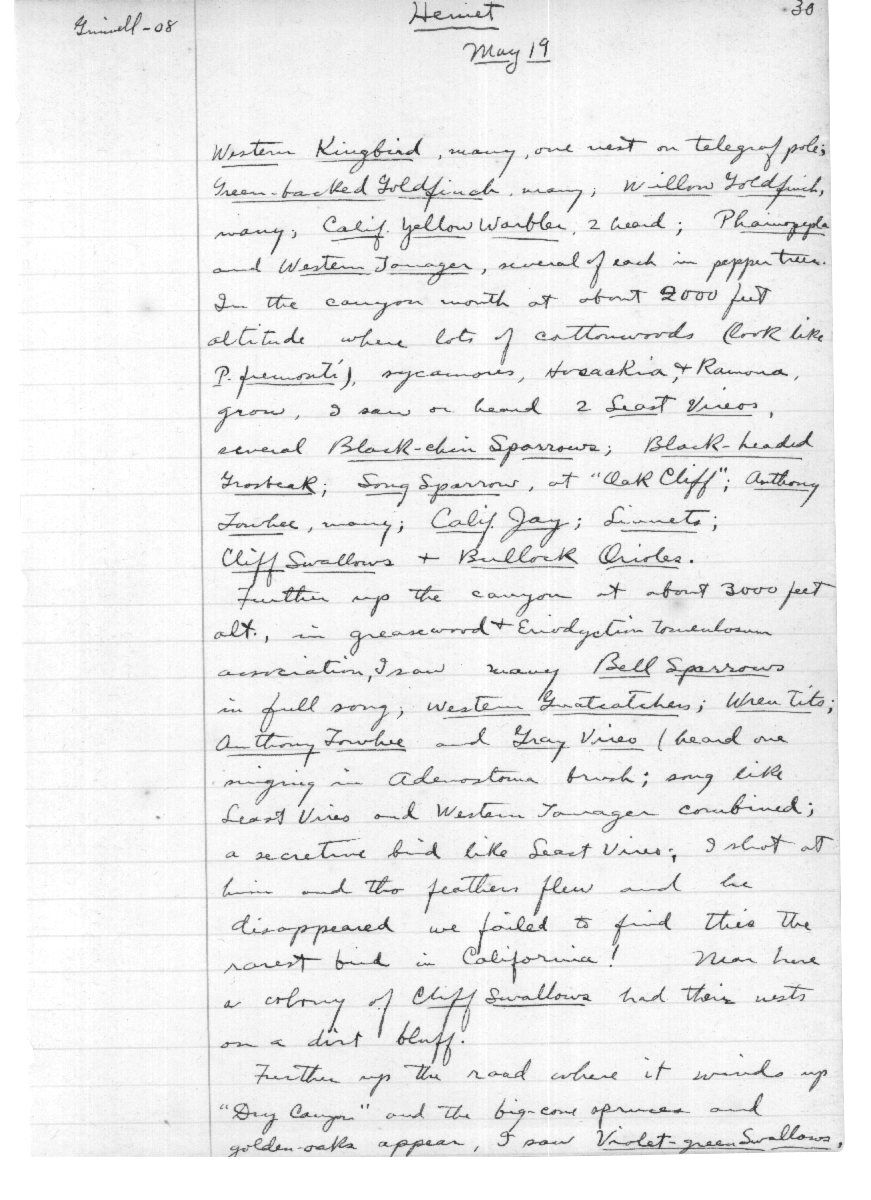 Grinnell-08
Hemet
30
May 19
Western Kingbird, many, one nest on telegraf pole;
Green-backed Goldfinch, many; Willow Goldfinch,
many; Calif. Yellow Warbler, 2 heard; Phainopepla
and Western Tanager, several of each in pepper trees.
In the canyon mouth at about 2000 feet
altitude where lots of cottonwoods (look like
P. fremonti), sycamores, Hosackia, & Ramona,
grow, I saw or heard 2 Least Vireos,
several Black-chin Sparrows; Black-headed
Grosbeak; Song Sparrow, at "Oak Cliff"; Anthony
Towhee, many; Calif. Jay; Linnets;
Cliff Swallows + Bullock Orioles.
Further up the canyon at about 3000 feet
alt., in greasewood + Eriodyction tomentosum
association, I saw many Bell Sparrows
in full song; Western Gnatcatchers; Wren Tits;
Anthony Towhee and Gray Vireo (heard one
singing in Adenostoma brush; song like
Least Vireo and Western Tanager combined;
a secretive bird like Least Vireo; I shot at
him and tho feathers flew and he
disappeared we failed to find this the
rarest bird in California! Near here
a colony of Cliff Swallows had their nests
on a dirt bluff.
Further up the road where it winds up
"Dry Canyon" and the big-cone spruces and
golden-oaks appear, I saw Violet-green Swallows,